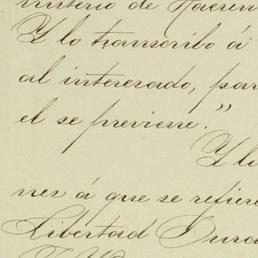 nisterio de Hacien
Y lo transcribo á
al interesado, par
el se previene."
Y lo
nes á que se refiere
Libertad